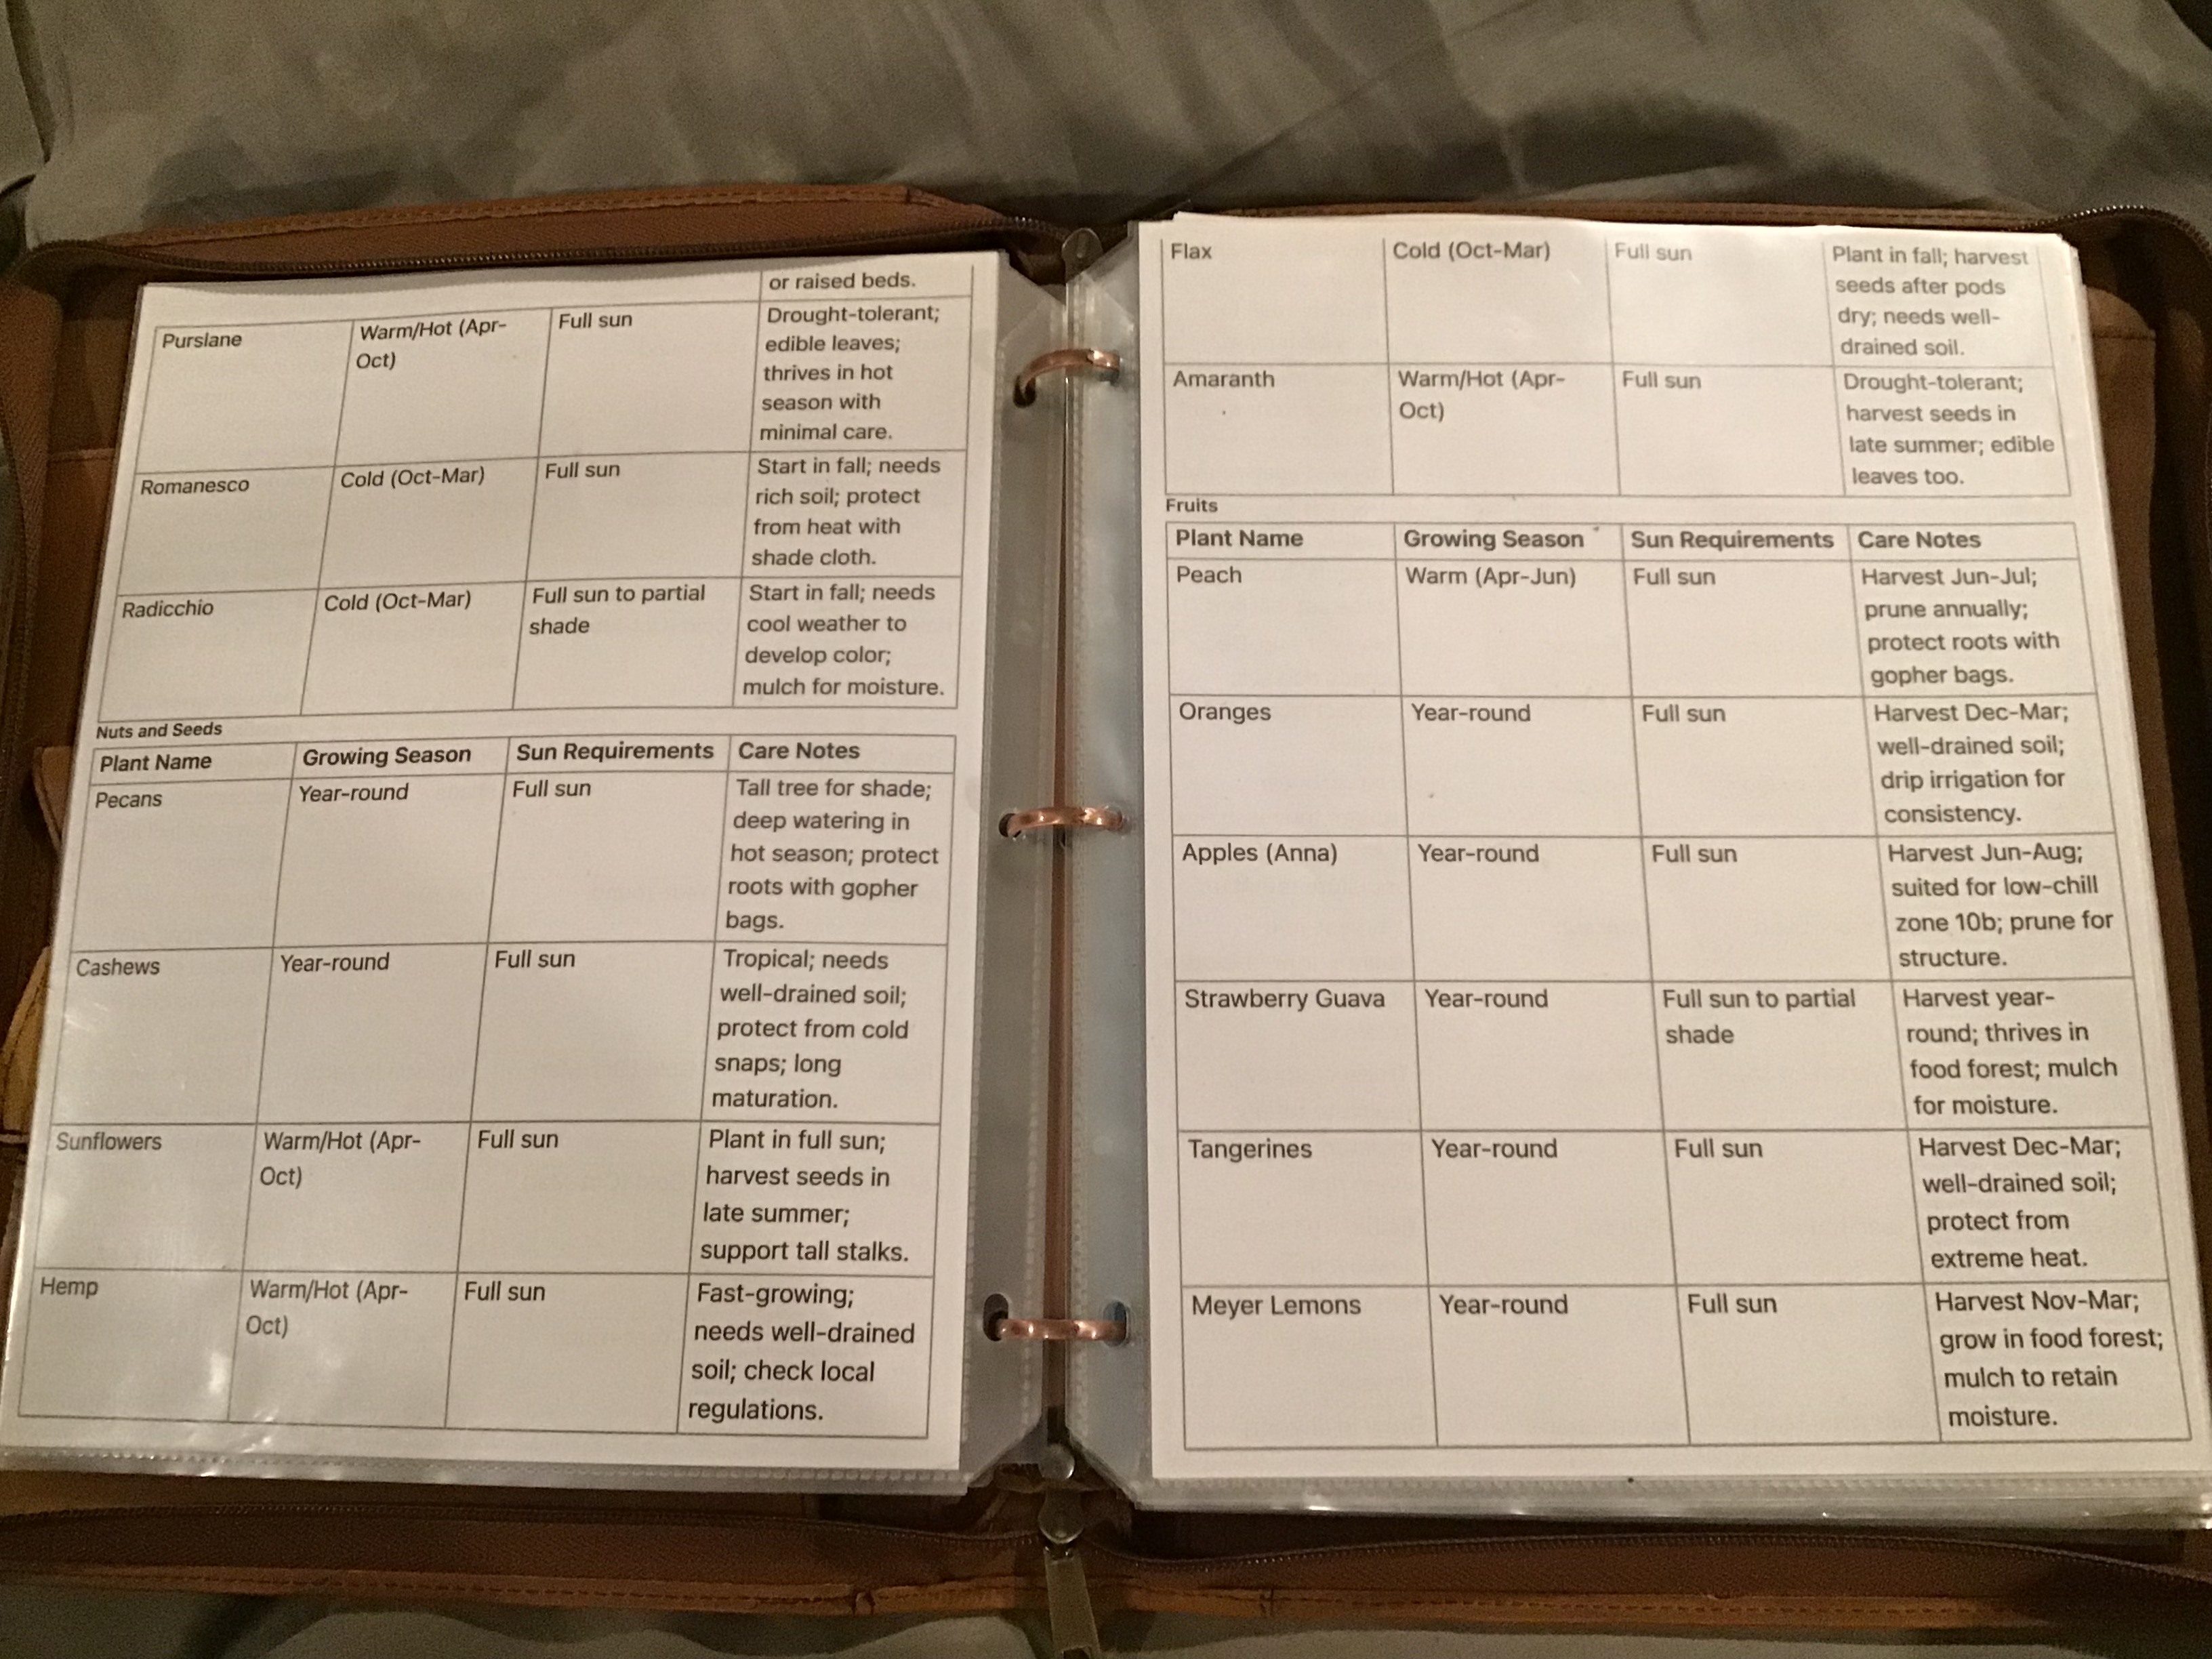 or raised beds.
Purslane
Warm/Hot (Apr-
Oct)
Full sun
Drought-tolerant;
edible leaves;
thrives in hot
season with
minimal care.
Romanesco
Cold (Oct-Mar)
Full sun
Start in fall; needs
rich soil; protect
from heat with
shade cloth.
Radicchio
Cold (Oct-Mar)
Full sun to partial
shade
Start in fall; needs
cool weather to
develop color;
mulch for moisture.
Nuts and Seeds
Plant Name
Growing Season
Sun Requirements
Care Notes
Pecans
Year-round
Full sun
Tall tree for shade;
deep watering in
hot season; protect
roots with gopher
bags.
Cashews
Year-round
Full sun
Tropical; needs
well-drained soil;
protect from cold
snaps; long
maturation.
Sunflowers
Warm/Hot (Apr-
Oct)
Full sun
Plant in full sun;
harvest seeds in
late summer;
support tall stalks.
Hemp
Warm/Hot (Apr-
Oct)
Full sun
Fast-growing;
needs well-drained
soil; check local
regulations.
Flax
Cold (Oct-Mar)
Full sun
Plant in fall; harvest
seeds after pods
dry; needs well-
drained soil.
Amaranth
Warm/Hot (Apr-
Oct)
Full sun
Drought-tolerant;
harvest seeds in
late summer; edible
leaves too.
Fruits
Plant Name
Growing Season
Sun Requirements
Care Notes
Peach
Warm (Apr-Jun)
Full sun
Harvest Jun-Jul;
prune annually;
protect roots with
gopher bags.
Oranges
Year-round
Full sun
Harvest Dec-Mar;
well-drained soil;
drip irrigation for
consistency.
Apples (Anna)
Year-round
Full sun
Harvest Jun-Aug;
suited for low-chill
zone 10b; prune for
structure.
Strawberry Guava
Year-round
Full sun to partial
shade
Harvest year-
round; thrives in
food forest; mulch
for moisture.
Tangerines
Year-round
Full sun
Harvest Dec-Mar;
well-drained soil;
protect from
extreme heat.
Meyer Lemons
Year-round
Full sun
Harvest Nov-Mar;
grow in food forest;
mulch to retain
moisture.